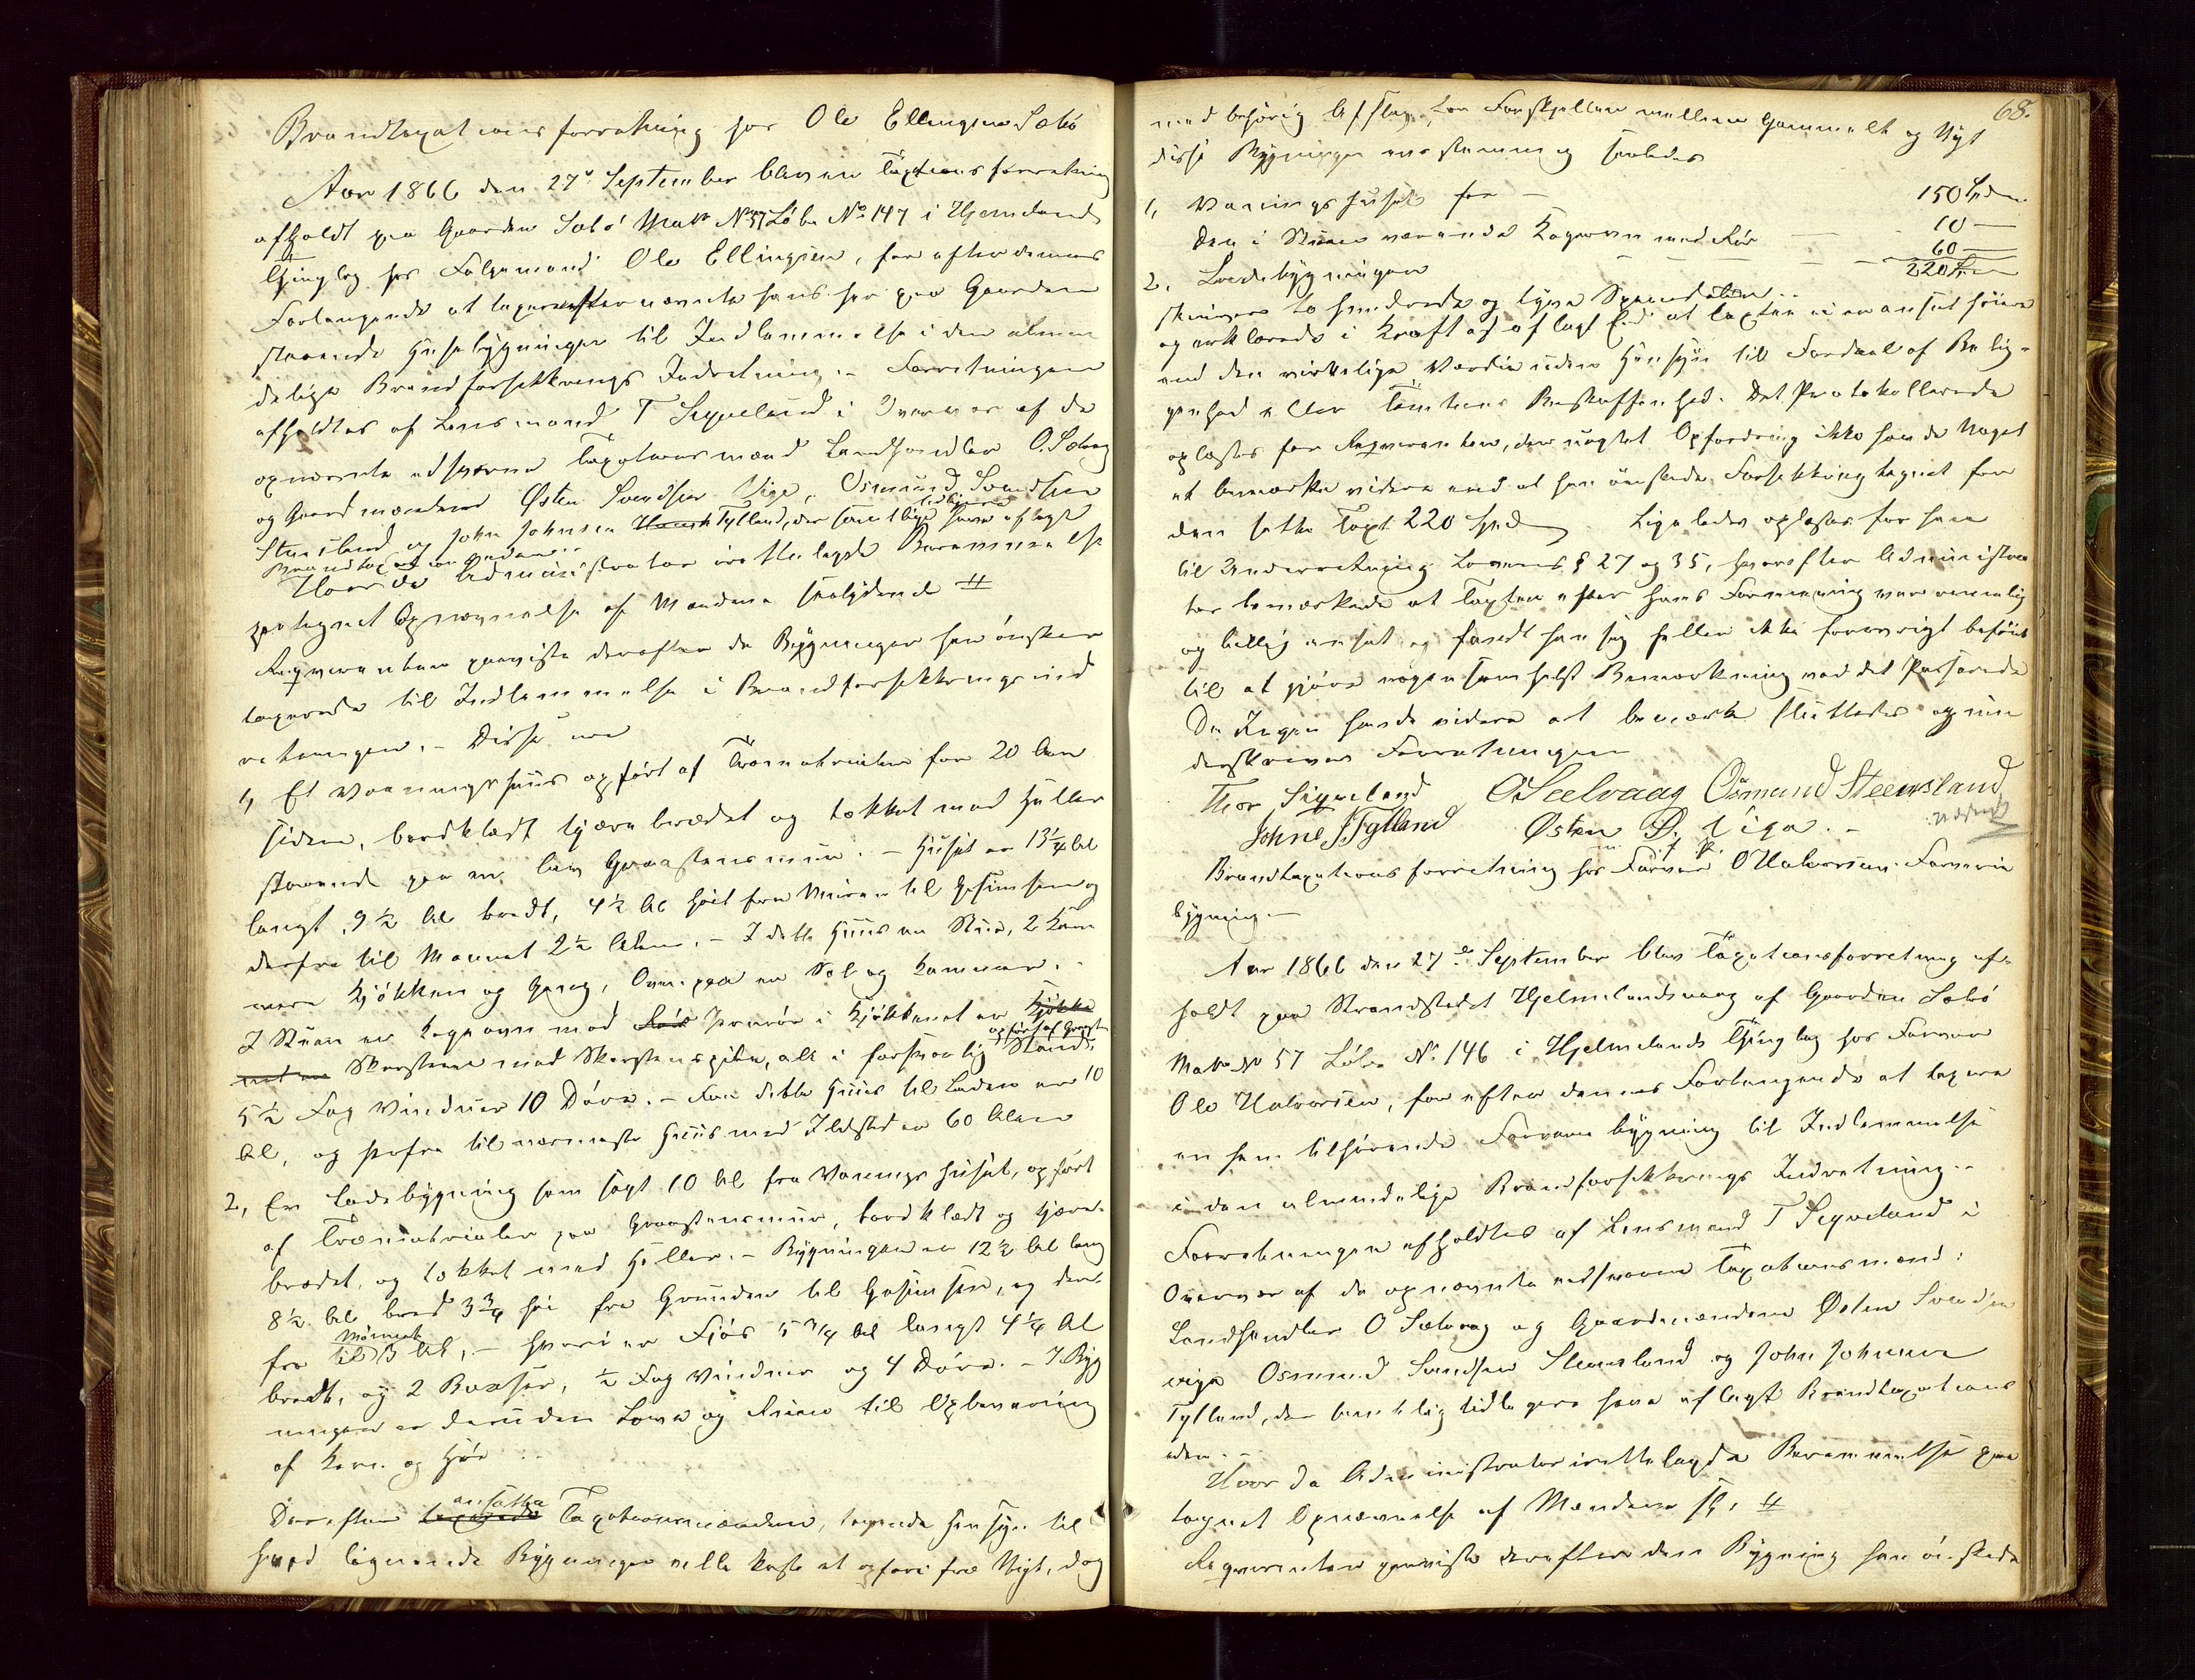 Brandtaxationsforretning hos Ole Ellingsen Sæbö
Aar 1866 den 27de September blev en Taxtionsforretning
afholdt paa Gaarden Sæbö Matr No 57 Löbe No 147 i Hjelmelands
Thinglag hos Folgemand Ole Ellingsen, for efter dennes
Forlangende at taxere efternævnte hans her paa Gaarden
staaende Husebygninger til Indlemmelse i den almin
delige Brandforsikkrings Indretning. – Forretningen
afholdtes af Lensmand T Sigveland i Overvær af de
opnævnte edsvorne Taxationsmænd Landhandler O. Sælvaag
og Gaardmændene Østen Svendsen Viga, Osmund Svendsen
Steensland og John Johnsen Tytland, der samtlige tidligere have aflagt
Brandtaxationseden. –
Hvor da Administrator irettelagde Berammelse
paategnet Opnævnelse af Mændene saalydende #
Reqvirenten paaviste derefter de Bygninger han önsker
taxerede til Indlemmelse i Brandforsikkringsind
retningen. – Disse ere
1, Et Vaaningshuus opfört af Træmatrialier for 20 Aar
siden, bordklædt tjærebrædet og tækket med Heller
staaende paa en lav Graasteensmuur. – Huset er 13 1/4 Al
langt, 9 1/2 Al bredt, 4 1/2 Al höit fra Muren til Gesimsen og
derfra til Mønnet 2 1/2 Alen. – I dette Huus er Stue, 2 Kam
mere Kjökken og Gang, Ovenpaa er Sal og Kammer. –
I Stuen er Kogeovn med Rör Jernrör i Kjökkenet er Kjökke
net en Skorsteen med Skorsteenspibe, alt i forsvarlig Stand. opfört af Graasten
5 1/2 Fag Vinduer 10 Döre. – Fra dette Huus til Laden er 10
Al, og herfra til nærmeste Huus med Ildsted er 60 Alen
2, En Ladebygning som sagt 10 Al fra Vaaningshuset, opfört
af Træmatrialier paa Graasteensmuur, bordklædt og tjære-
brædet, og tækket med Heller. – Bygningen er 12 1/2 Al lang
8 1/2 Al bred 3 3/4 höi fra Grunden til Gesimsen, og der-
fra til Mönnet 3 Al, – hvori er Fjös 5 3/4 Al langt 4 1/4 Al
bredt, og 2 Baaser, 1/2 Fag Vinduer og 4 Döre. – I Byg
ningen er desuden Lowe og Rum til Opbevaring
af Korn og Hö. –
Derefter taxerede ansatte Taxationsmændene, tagende Hensyn til
hvad lignende Bygninger ville koste at opföre fra Nyt, dog
68.
med behörig Afslag for Forskjellen mellem Gammelt og Nyt
disse Bygninger eensstemmig saaledes
1, Vaaningshuset for – 150 Spd
Den i Stuen værende Kogeovn med Rör – 10 –
2. Ladebygningen – 60 –
220 Spd
skriver to hundrede og tyve Speciedaler. –
og erklærede i Kraft af aflagt Eed at Taxten ei er ansat höiere
end den virkelige Værdie uden Hensyn til Fordeel af Belig-
genhed eller Tomtens Beskaffenhed. Det Protokollerede
oplæstes for Reqvirenten, der uagtet Opfordring ikke havde Noget
at bemærke videre end at han önskede Forsikkring tegnet for
den satte Taxt 220 Spd Ligeledes oplæstes for ham
til Underretning Lovens § 27 og 35, hvorefter Administra
tor bemærkede at Taxten efter hans Formening var rimelig
og billig ansat og fandt han sig heller ikke forövrigt beföiet
til at gjöre nogensomhelst Bemærkning ved det Passerede
Da Ingen havde videre at bemærke sluttedes og un
derskreves Forretningen
Thor Sigveland O Seelvaag Osmund Steensland
Johne J Tytland Østen S. Viga. –
Brandtaxationsforretning hos Farver O Halvorsen Farverie
bygning. –
Aar 1866 den 27de September blev Taxationsforretning af-
holdt paa Strandstedet Hjelmelandsvaag af Gaarden Sæbö
Matr No 57 Löbe No 146 i Hjelmelands Thinglag hos Farver
Ole Halvorsen, for efter dennes Forlangende at taxere
en ham tilhörende Farverie bygning til Indlemmelse
i den almindelige Brandforsikkrings Indretning. –
Forretningen afholdtes af Lensmand T Sigveland i
Overvær af de opnævnte edsvorne Taxationsmænd:
Landhandler O Sælvaag og Gaardmændene Østen Svendsen
Viga Osmund Svendsen Steensland og John Johnsen
Tytland, der samtlig tidligere have aflagt Brandtaxations
eden. –
Hvor da Administrator irettelagde Berammelse paa
tegnet Opnævnelse af Mændene sl. #
Reqvirenten paaviste derefter den Bygning han önskede